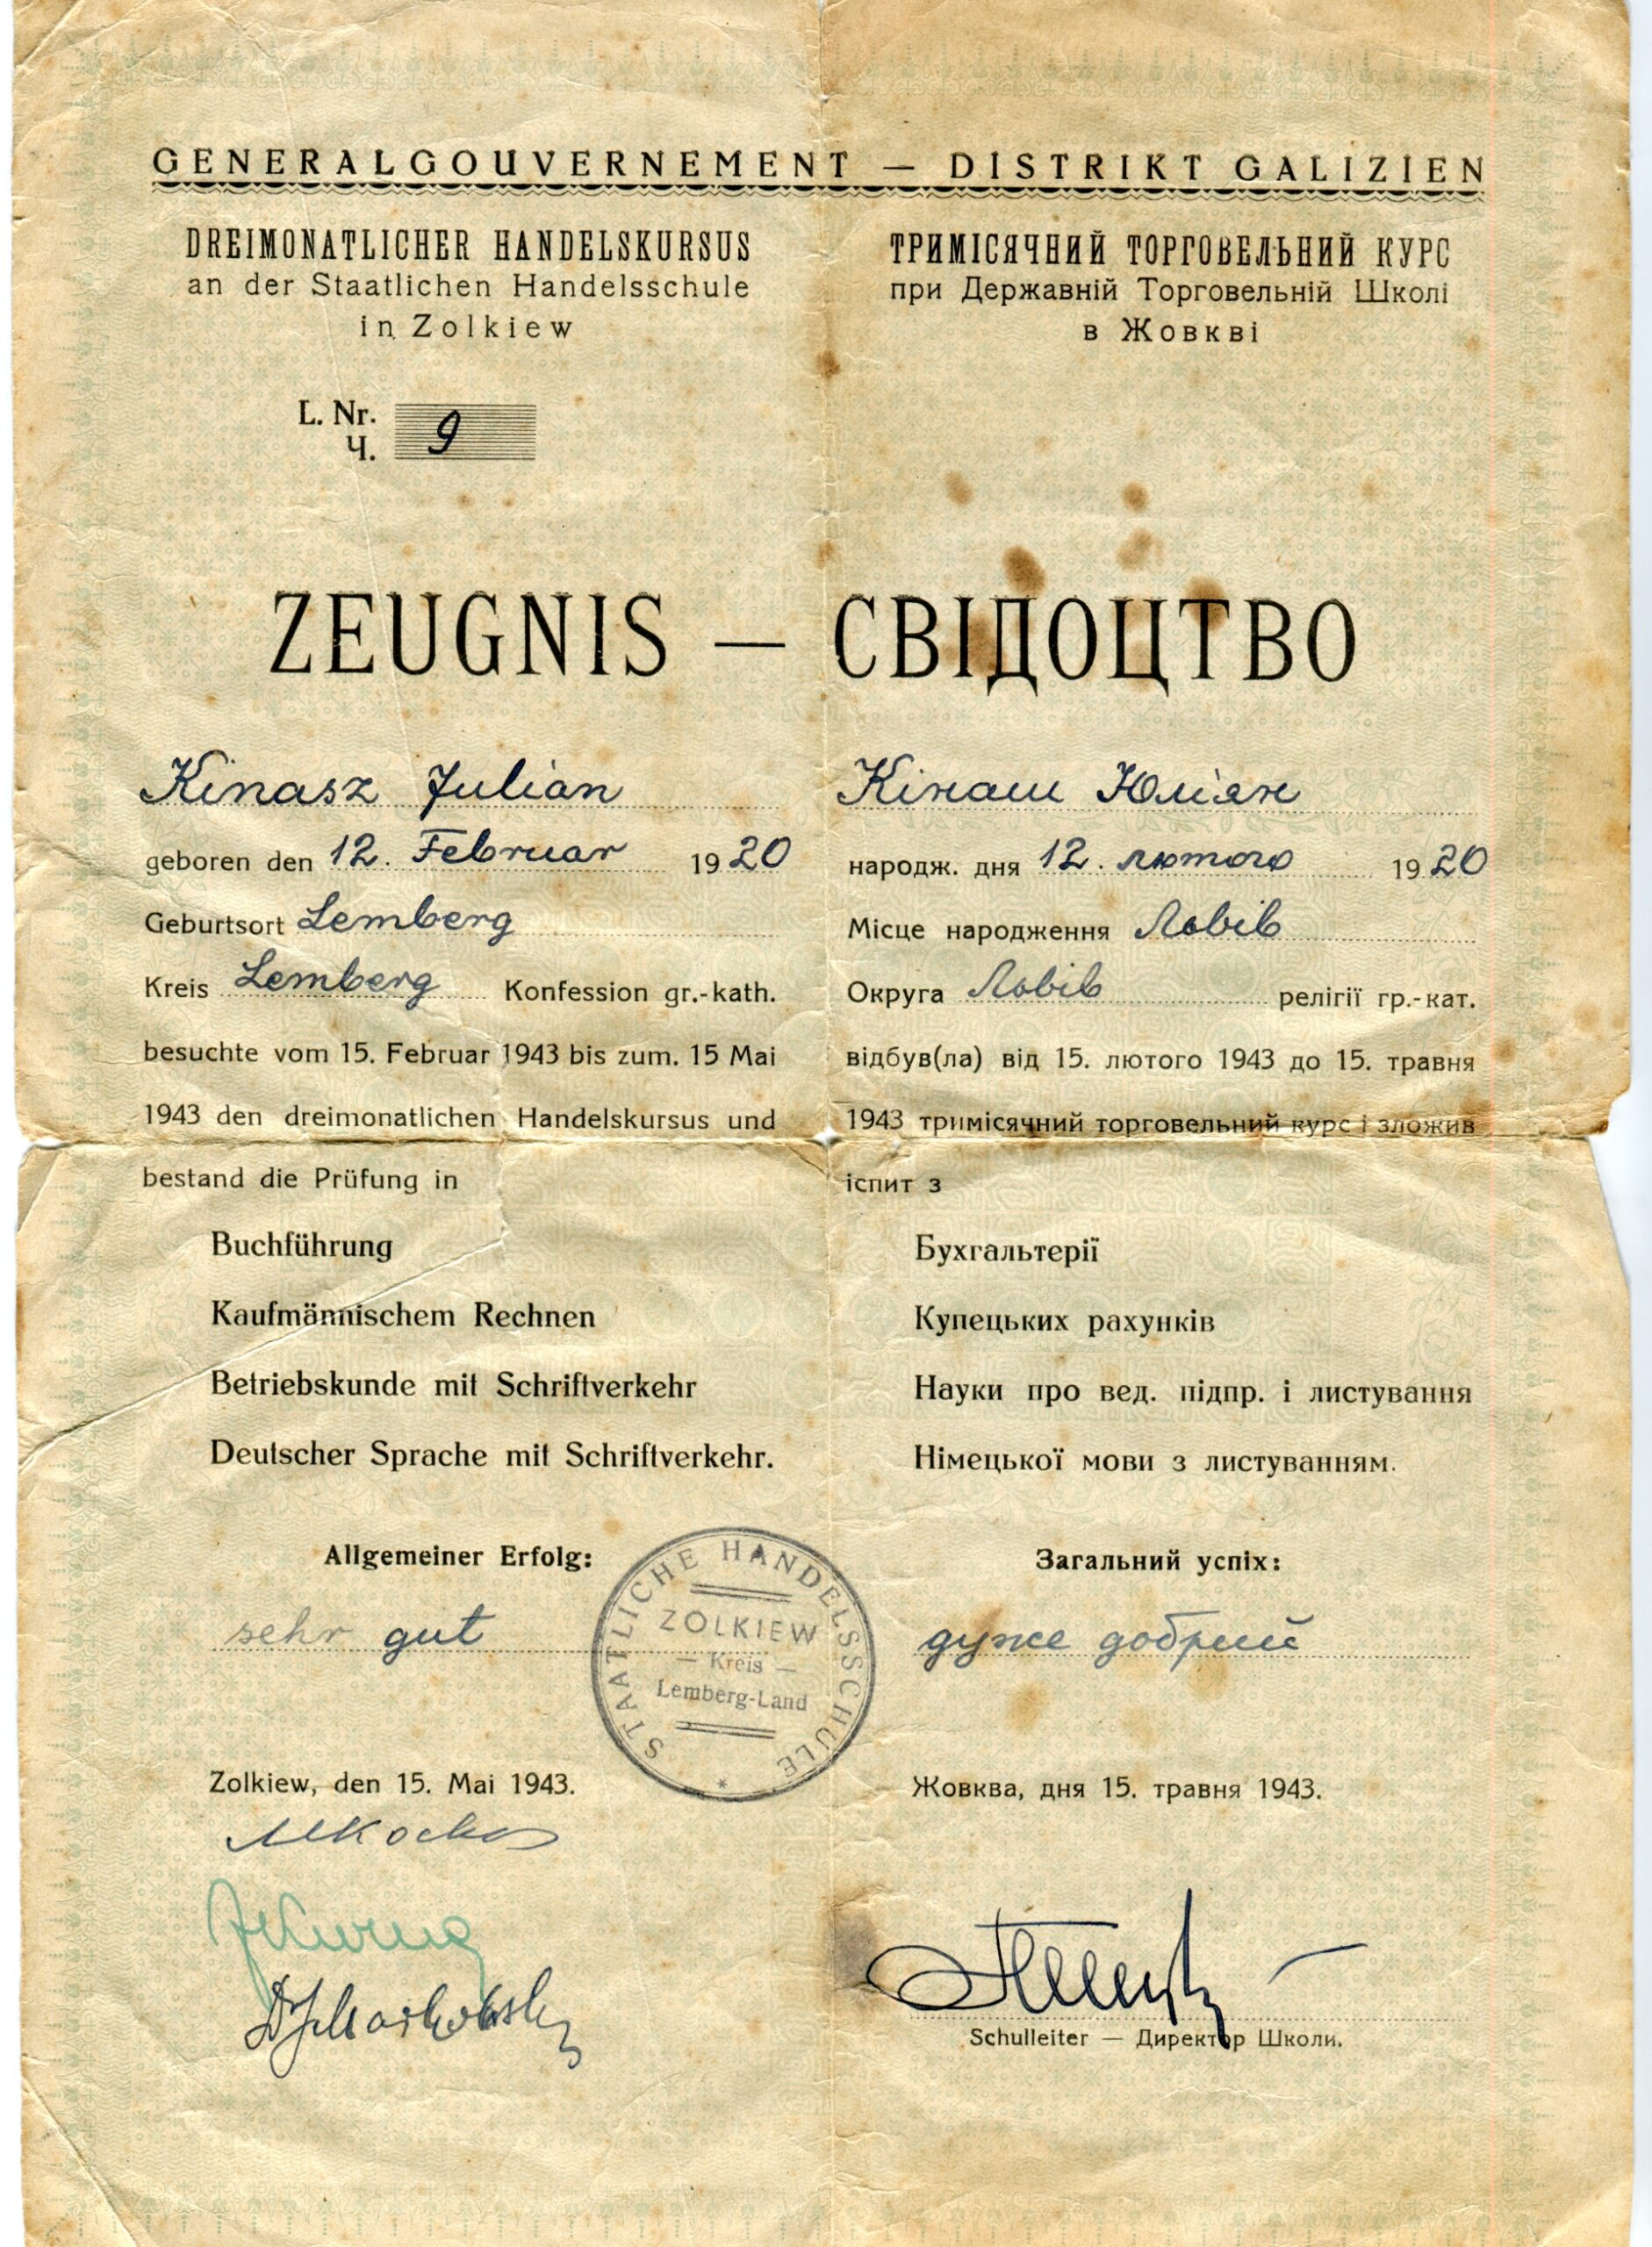 GENERALGOUVERNEMENT — DISTRIKT GALIZIEN
DREIMONATLICHER HANDELSKURSUS
an der Staatlichen Handelsschule
in Zolkiew
ТРИМІСЯЧНИЙ ТОРГОВЕЛЬНИЙ КУРС
при Державній Торговельній Школі
в Жовкві
L. Nr.
Ч.
9
ZEUGNIS — СВІДОЦТВО
Kinasz Julian
geboren den 12. Februar 1920
Geburtsort Lemberg
Kreis Lemberg Konfession gr.-kath.
besuchte vom 15. Februar 1943 bis zum. 15 Mai
1943 den dreimonatlichen Handelskursus und
bestand die Prüfung in
Buchführung
Kaufmännischem Rechnen
Betriebskunde mit Schriftverkehr
Deutscher Sprache mit Schriftverkehr.
Allgemeiner Erfolg:
sehr gut
Zolkiew, den 15. Mai 1943.
Кінаш Юліян
народж. дня 12. лютого 1920
Місце народження Львів
Округа Львів релігії гр.-кат.
відбув(ла) від 15. лютого 1943 до 15. травня
1943 тримісячний торговельний курс і зложив
іспит з
Бухгальтерії
Купецьких рахунків
Науки про вед. підпр. і листування
Німецької мови з листуванням.
Загальний успіх:
дуже добрий
Жовква, дня 15. травня 1943.
Schulleiter — Директор Школи.
STAATLICHE HANDELSSCHULE
ZOLKIEW
— Kreis —
Lemberg-Land
*